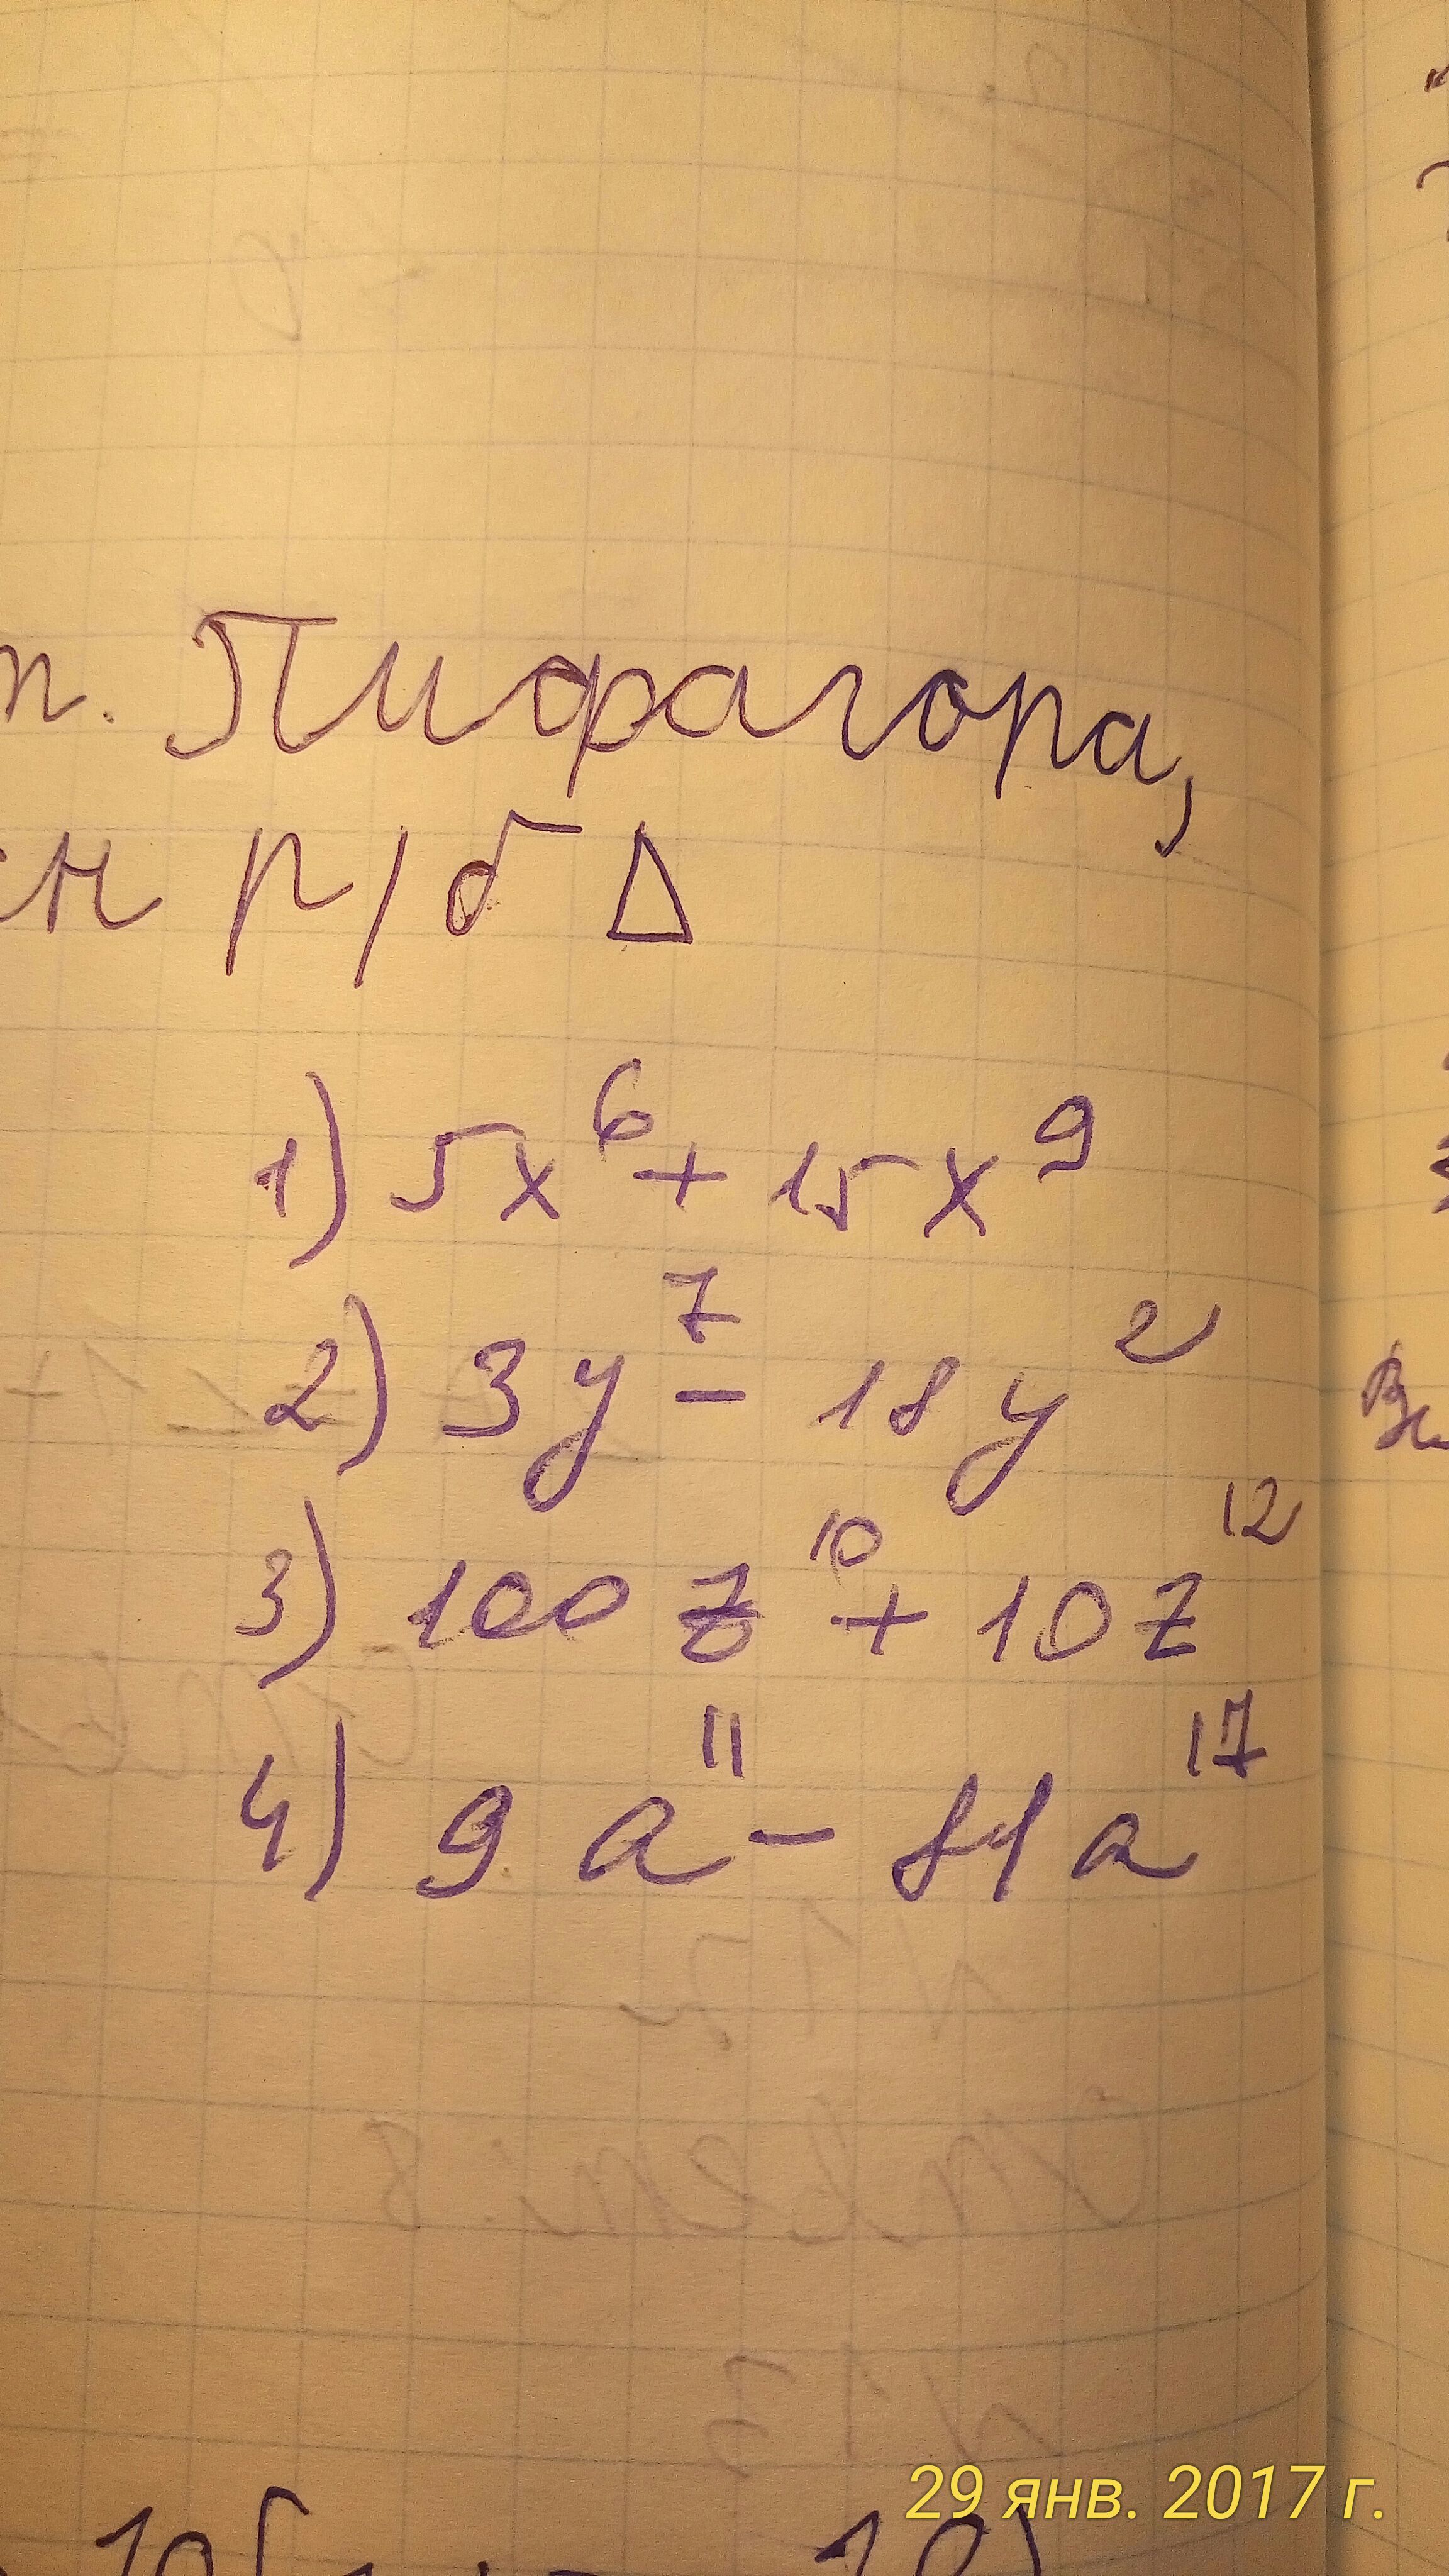 т. Пифагора,
р/б Δ
1) 5x⁶ + 15x⁹
2) 3y⁷ - 18y²
3) 100z¹⁰ + 10z¹²
4) 9a¹¹ - 81a¹⁷
29 янв. 2017 г.